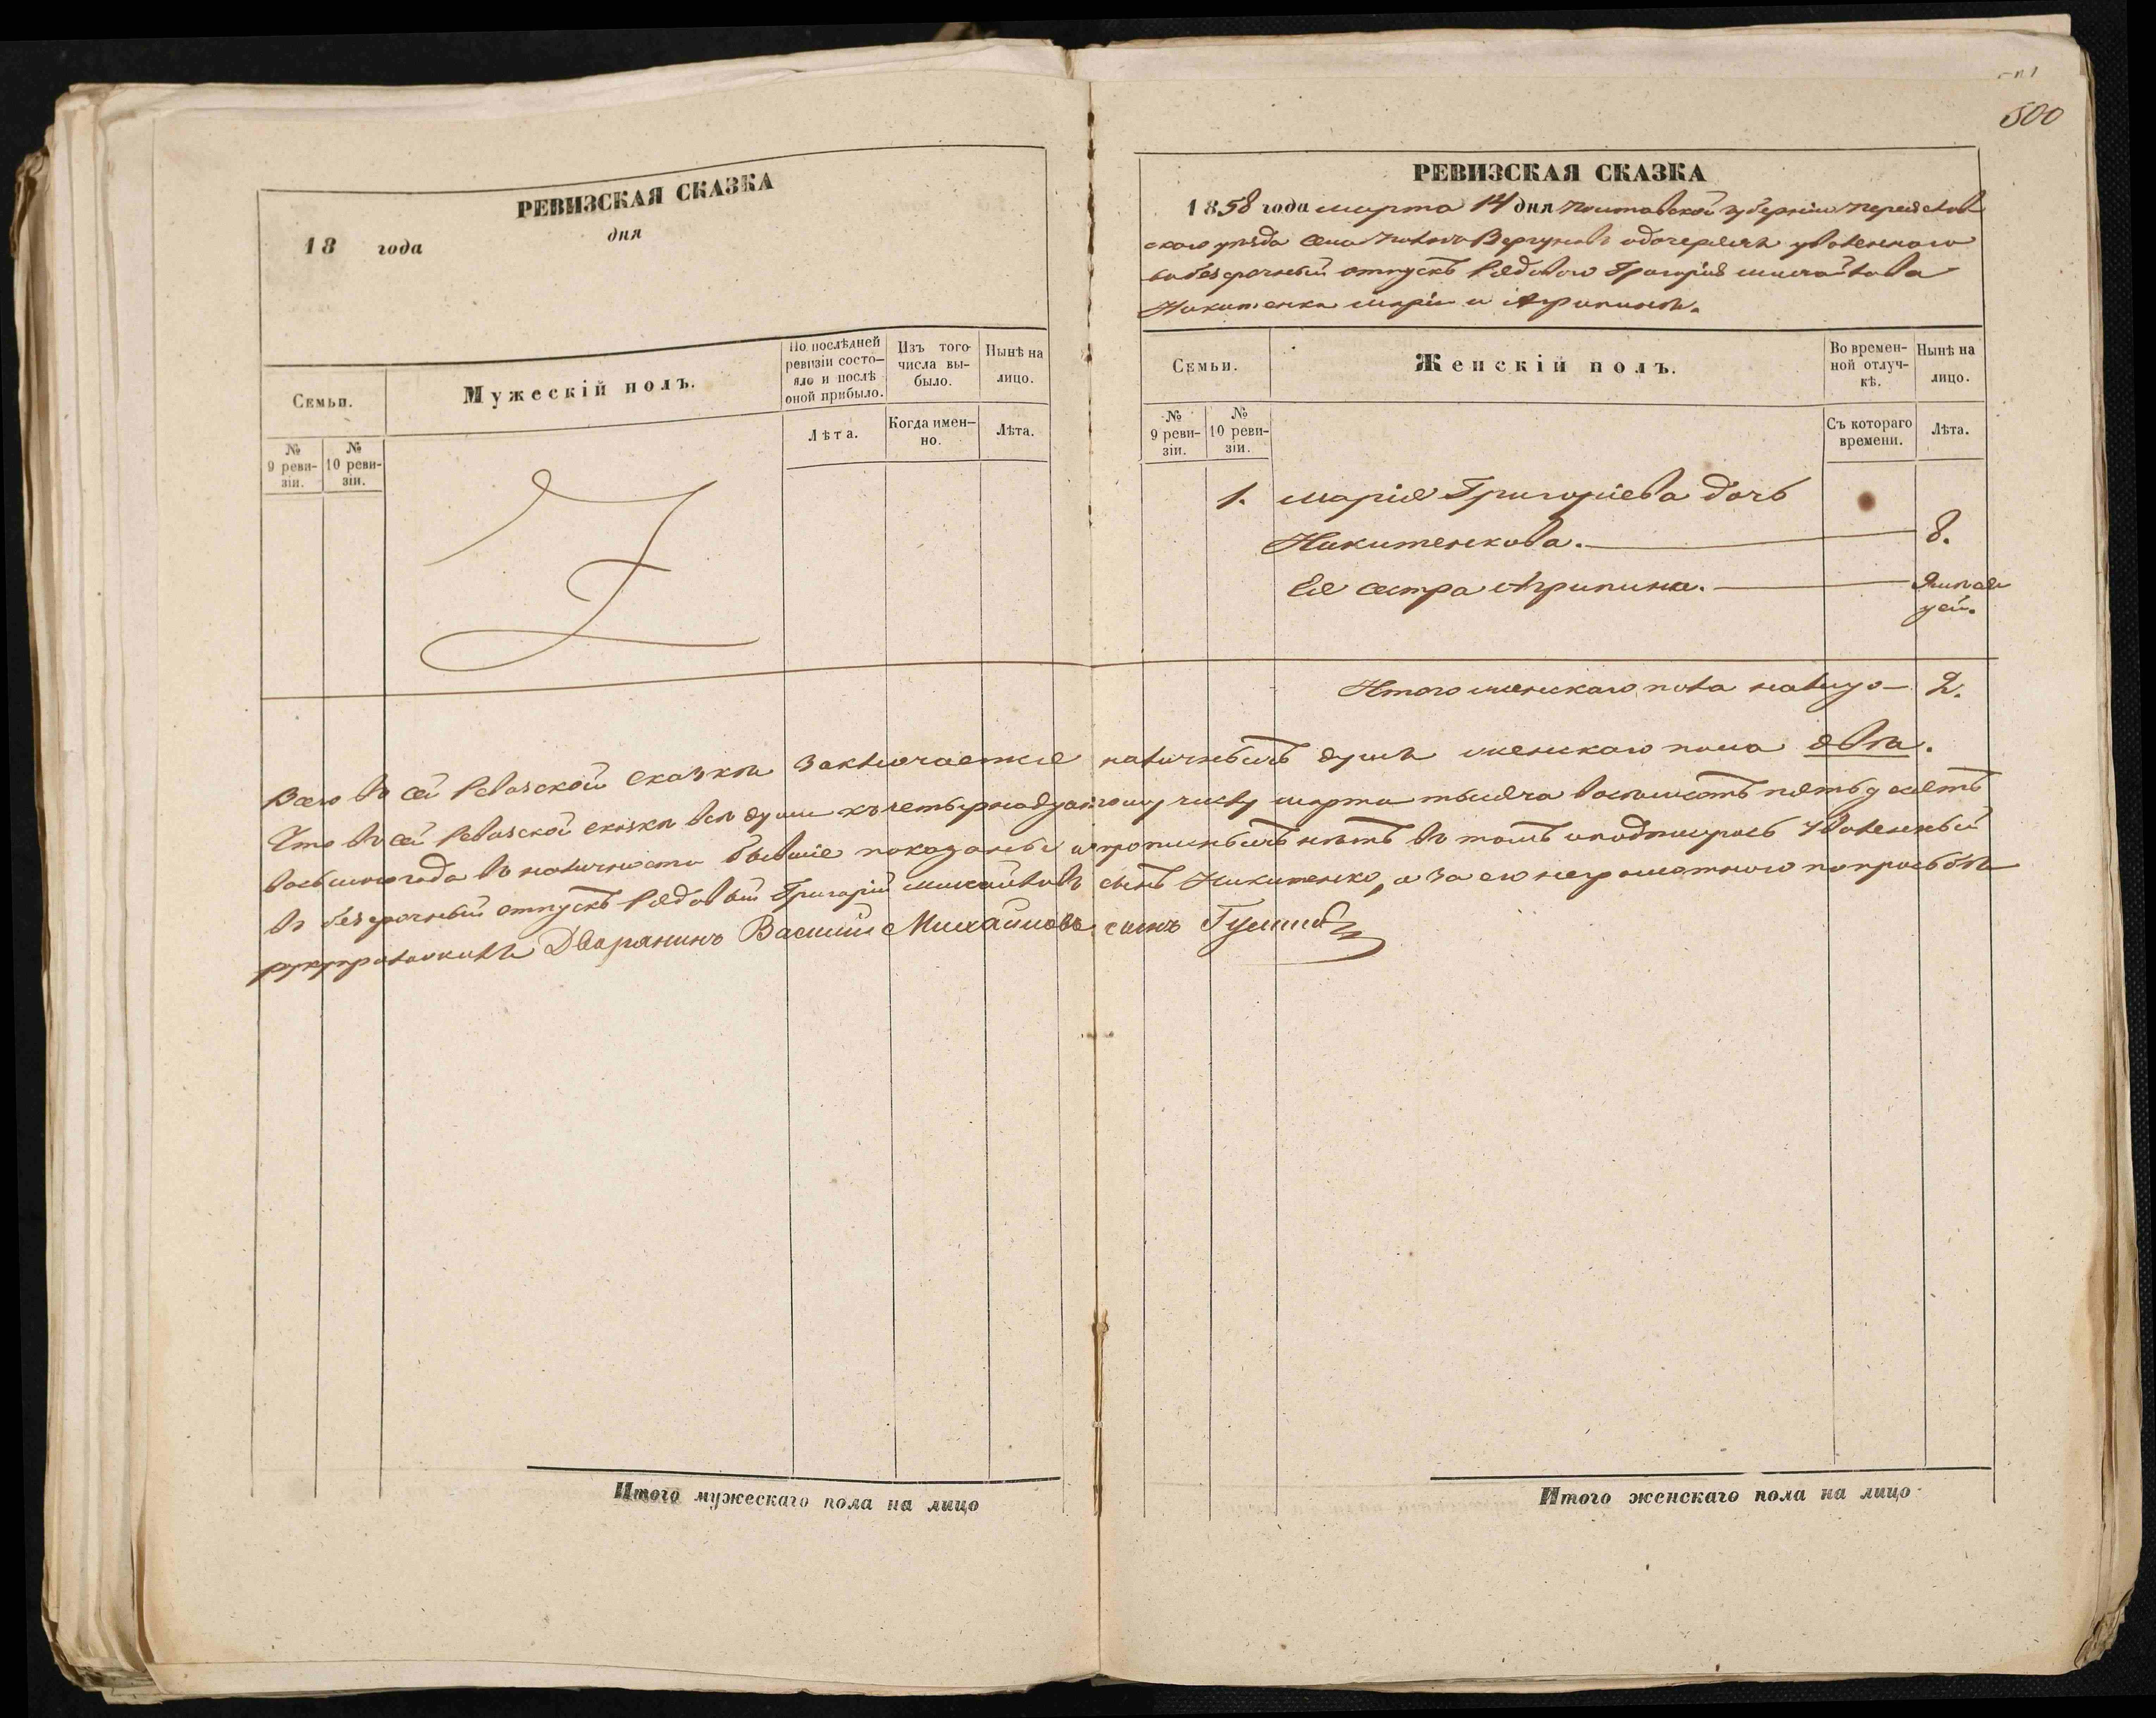 500
РЕВИЗСКАЯ СКАЗКА
18 года дня
Семьи.
Мужескій полъ.
По послѣдней ревизіи состо-яло и послѣ оной прибыло.
Изъ того числа вы-было.
Нынѣ на лицо.
№ 9 реви-зіи.
№ 10 реви-зіи.
Лѣта.
Когда имен-но.
Лѣта.
РЕВИЗСКАЯ СКАЗКА
1858 года марта 14 дня Полтавской губерніи Переяслов
скаго уѣзда села Вергуновъ одочеряхъ уволеннаго
вобезсрочный отпускъ Рядоваго Григорія михайлова
Никитенка маріи и Агрипинѣ.
Семьи.
Женскій полъ.
Во времен-ной отлуч-кѣ.
Нынѣ на лицо.
№ 9 реви-зіи.
№ 10 реви-зіи.
Съ котораго времени.
Лѣта.
1. марія Григоріева дочь
Никитенкова. 8.
Ея сестра Агрипина.
Итого женскаго пола налицо 2.
Всего въ сей Ревизской сказкѣ заключается наличныхъ душъ женскаго пола двѣ.
Что въ сей Ревизской сказкѣ всѣ души къ четырнадцатому числу марта тысяча восемсотъ пятьдесятъ
восьмого года въ наличности бывшіе показаны и пропинныхъ нѣтъ въ томъ и подпишуюсь Уволенный
въ безсрочный отпускъ Рядовый Григорій михайловъ сынъ Никитенко, а за его неграмотного попросьбѣ
Дворянинъ Василий Михайловъ сынъ
Итого мужескаго пола на лицо
Итого женскаго пола на лицо